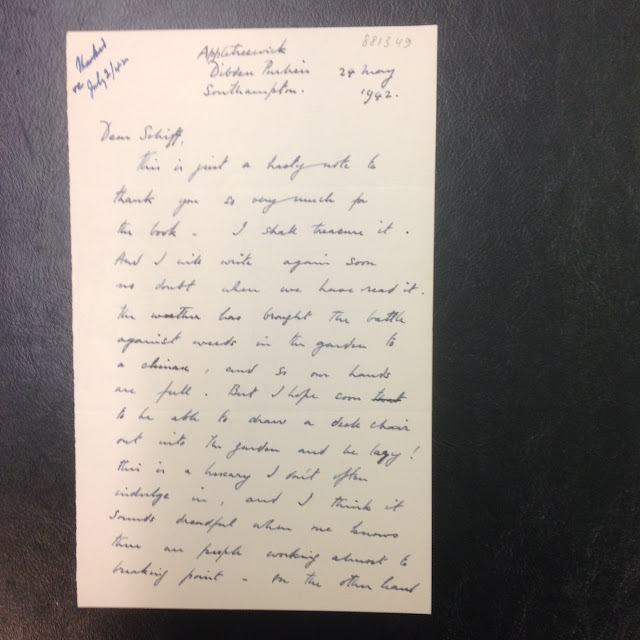 881349
Thanked
July 2/42
Appletreewick
Dibden Purlieu 24 May
Southampton. 1942.
Dear Schiff,
This is just a hasty note to
thank you so very much for
the book - I shall treasure it.
And I will write again soon
no doubt when we have read it.
The weather has brought the battle
against weeds in the garden to
a climax, and so our hands
are full. But I hope soon
to be able to draw a deck chair
out into the garden and be lazy!
This is a luxury I don't often
indulge in, and I think it
sounds dreadful when one knows
there are people working almost to
breaking point - on the other hand